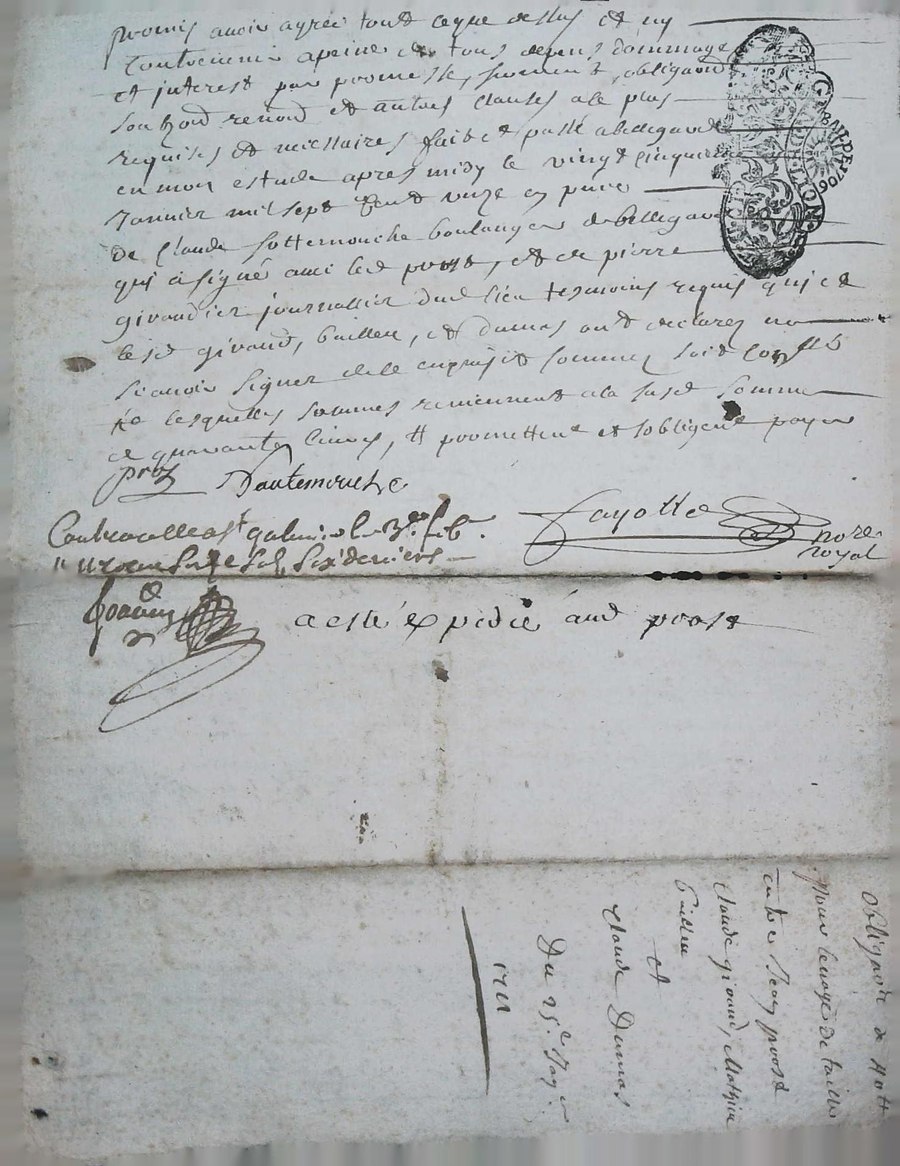 promis avoir agréé tout ceque dessus et ny
Contrevenir apeine de tous depens dommage
et interest par promesse, serment, obligaon
soubzon renon et autres clauses ale plus
requises et necessaires fait et passé abellegarde
en mon estude apres midy le vingt cinquie
Janvier mil sept cent unze en pnce
de Claude Sottemouche boulanger de bellegarde
qui a signé avec led prost, et de pierre
giraudier journallier dud lieu tesmoins requis qui et
lesd giraud, buillen, et dumas ont declarez ne
scavoir signer
lesquelles sommes reviennent ala susd somme
de quarante livres, promettent et sobligent payer
prost
Sautemouche
fayolle
no.re
royal
Controollé a st galmier le 3.e feb.
six deniers
a esté expedié aud proost
GENAL. DE LION
Obligaon de 40 tt
entre Jean proost
Claude giraud, Mathieu
buillen
et
Claude Dumas
Du 25.e Jan
1711